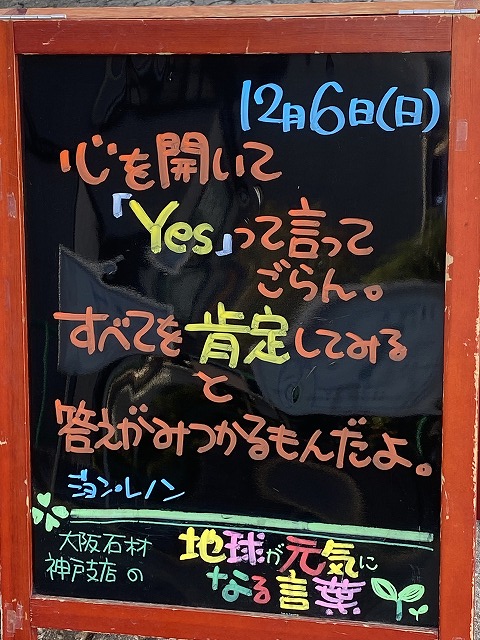 12月6日(日)
心を開いて
「Yes」って言って
ごらん。
すべてを肯定してみる
と
答えがみつかるもんだよ。
ジョン・レノン
大阪石材
神戸支店の
地球が元気に
なる言葉